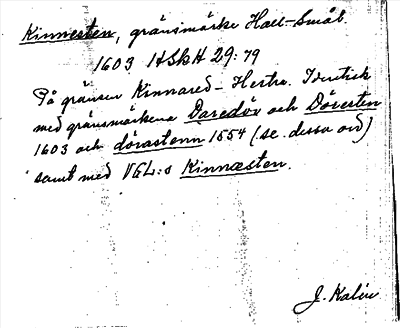 Kinnesten, gränsmärke Hall-Smål.
1603 HSkH 29:79
På gränsen Kinnared - Hestra. Identisk
med gränsmärkena Daredör och Döresten
1603 och dörastenn 1554 (se dessa ord)
samt med VGL:s Kinnæsten.
J. Kalén